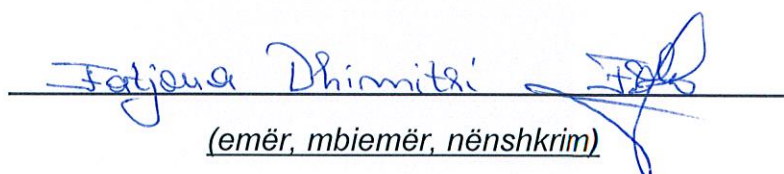 Fatjona Dhimitri
(emër, mbiemër, nënshkrim)